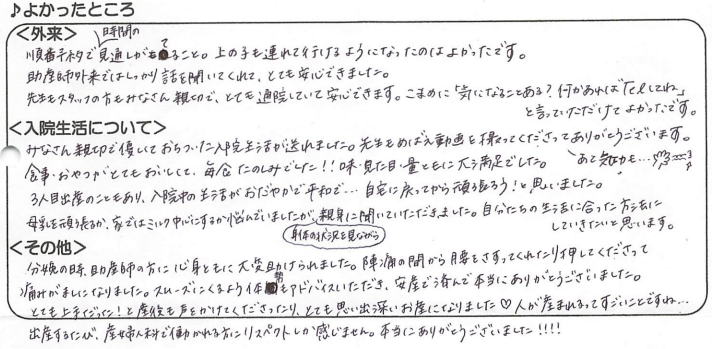 ♪よかったところ
<外来>
順番予約で時間の見通しがもてること。上の子も連れて行けるようになったのはよかったです。
助産師外来ではしっかり話を聞いてくれて、とても安心できました。
先生もスタッフの方もみなさん親切で、とても通院していて安心できます。こまめに「気になることある?何かあればTelしてね」
と言っていただけてよかったです。
<入院生活について>
みなさん親切で優しくておちついた入院生活が送れました。先生もめばえ動画を撮ってくださってありがとうございます。
食事・おやつがとてもおいしくて、毎食たのしみでした!!味・見た目・量ともに大満足でした。
3人目出産のこともあり、入院中の生活がおだやかで平和で…自宅に戻ってから頑張ろう!と思いました。
母乳を頑張るか、家ではミルク中心にするか悩んでいましたが、親身に聞いていただきました。自分たちの生活に合った方法に
していきたいと思います。
身体の状況を見ながら
<その他>
分娩の時、助産師の方に心身ともに大変助けられました。陣痛の間から腰をさすってくれたり押してくださって
痛みがましになりました。スムーズにいくよう体勢もアドバイスいただき、安産で済んで本当にありがとうございました。
とても上手だった!と産後も声をかけてくださったり、とても思い出深いお産になりました♡人が産まれるってすごいことですね…
出産するたび、産婦人科で働かれる方にリスペクトしか感じません。本当にありがとうございました!!!!